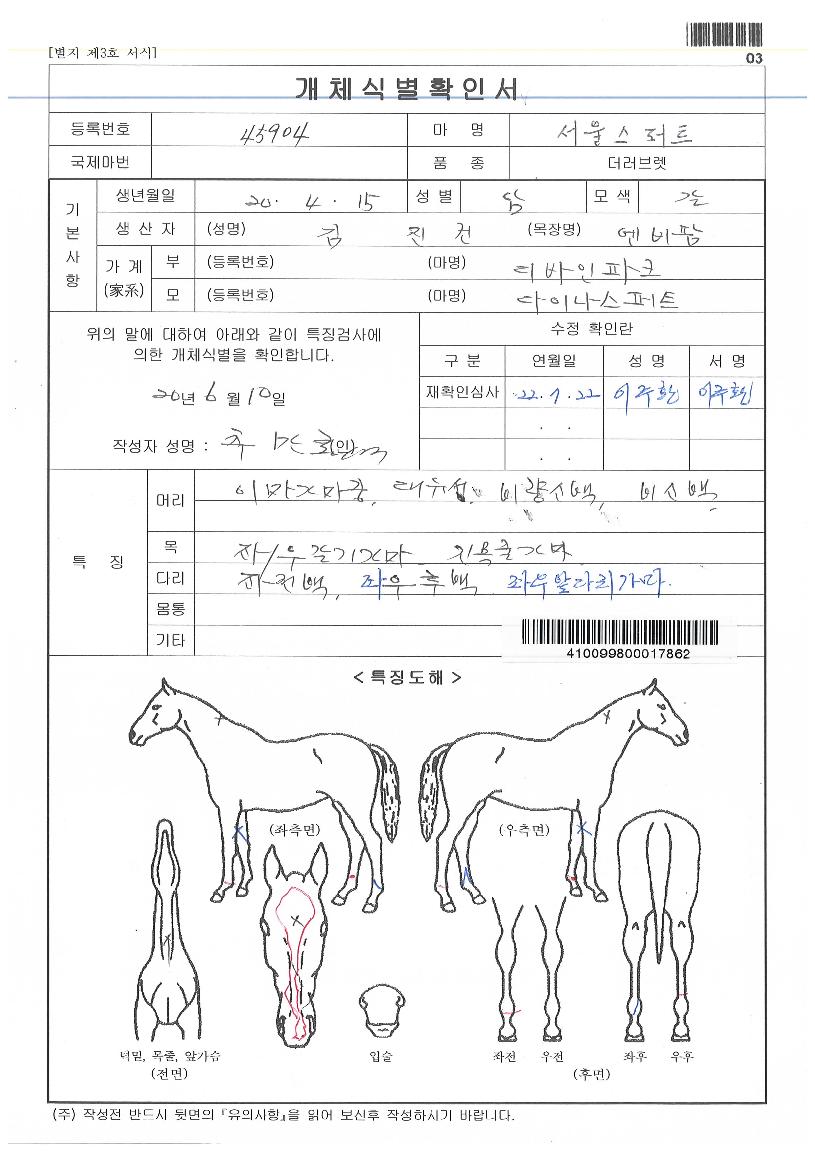 [별지 제3호 서식]
03
개체식별확인서
등록번호 45904 마 명 서울스퍼트
국제마번 품 종 더러브렛
기본사항
생년월일 20. 4. 15 성별 암 모색 갈
생 산 자 (성명) 김 진 건 (목장명) 엔비팜
가 계 (家系) 부 (등록번호) (마명) 디바인파크
모 (등록번호) (마명) 다이나스퍼트
위의 말에 대하여 아래와 같이 특징검사에
의한 개체식별을 확인합니다.
20년 6월 10일
작성자 성명 : (인)
수정 확인란
구 분 연월일 성 명 서 명
재확인심사 22. 1. 22 이주환 이주환
. .
. .
특 징
머리 이마가마중, 비량소백, 비소백
목 좌/우갈기가마
다리 좌전백, 좌우후백 좌우앞다리가마.
몸통
기타
410099800017862
< 특징도해 >
(좌측면) (우측면)
턱밑, 목줄, 앞가슴
(전면)
입술
좌전 우전 좌후 우후
(후면)
(주) 작성전 반드시 뒷면의 『유의사항』을 읽어 보신후 작성하시기 바랍니다.